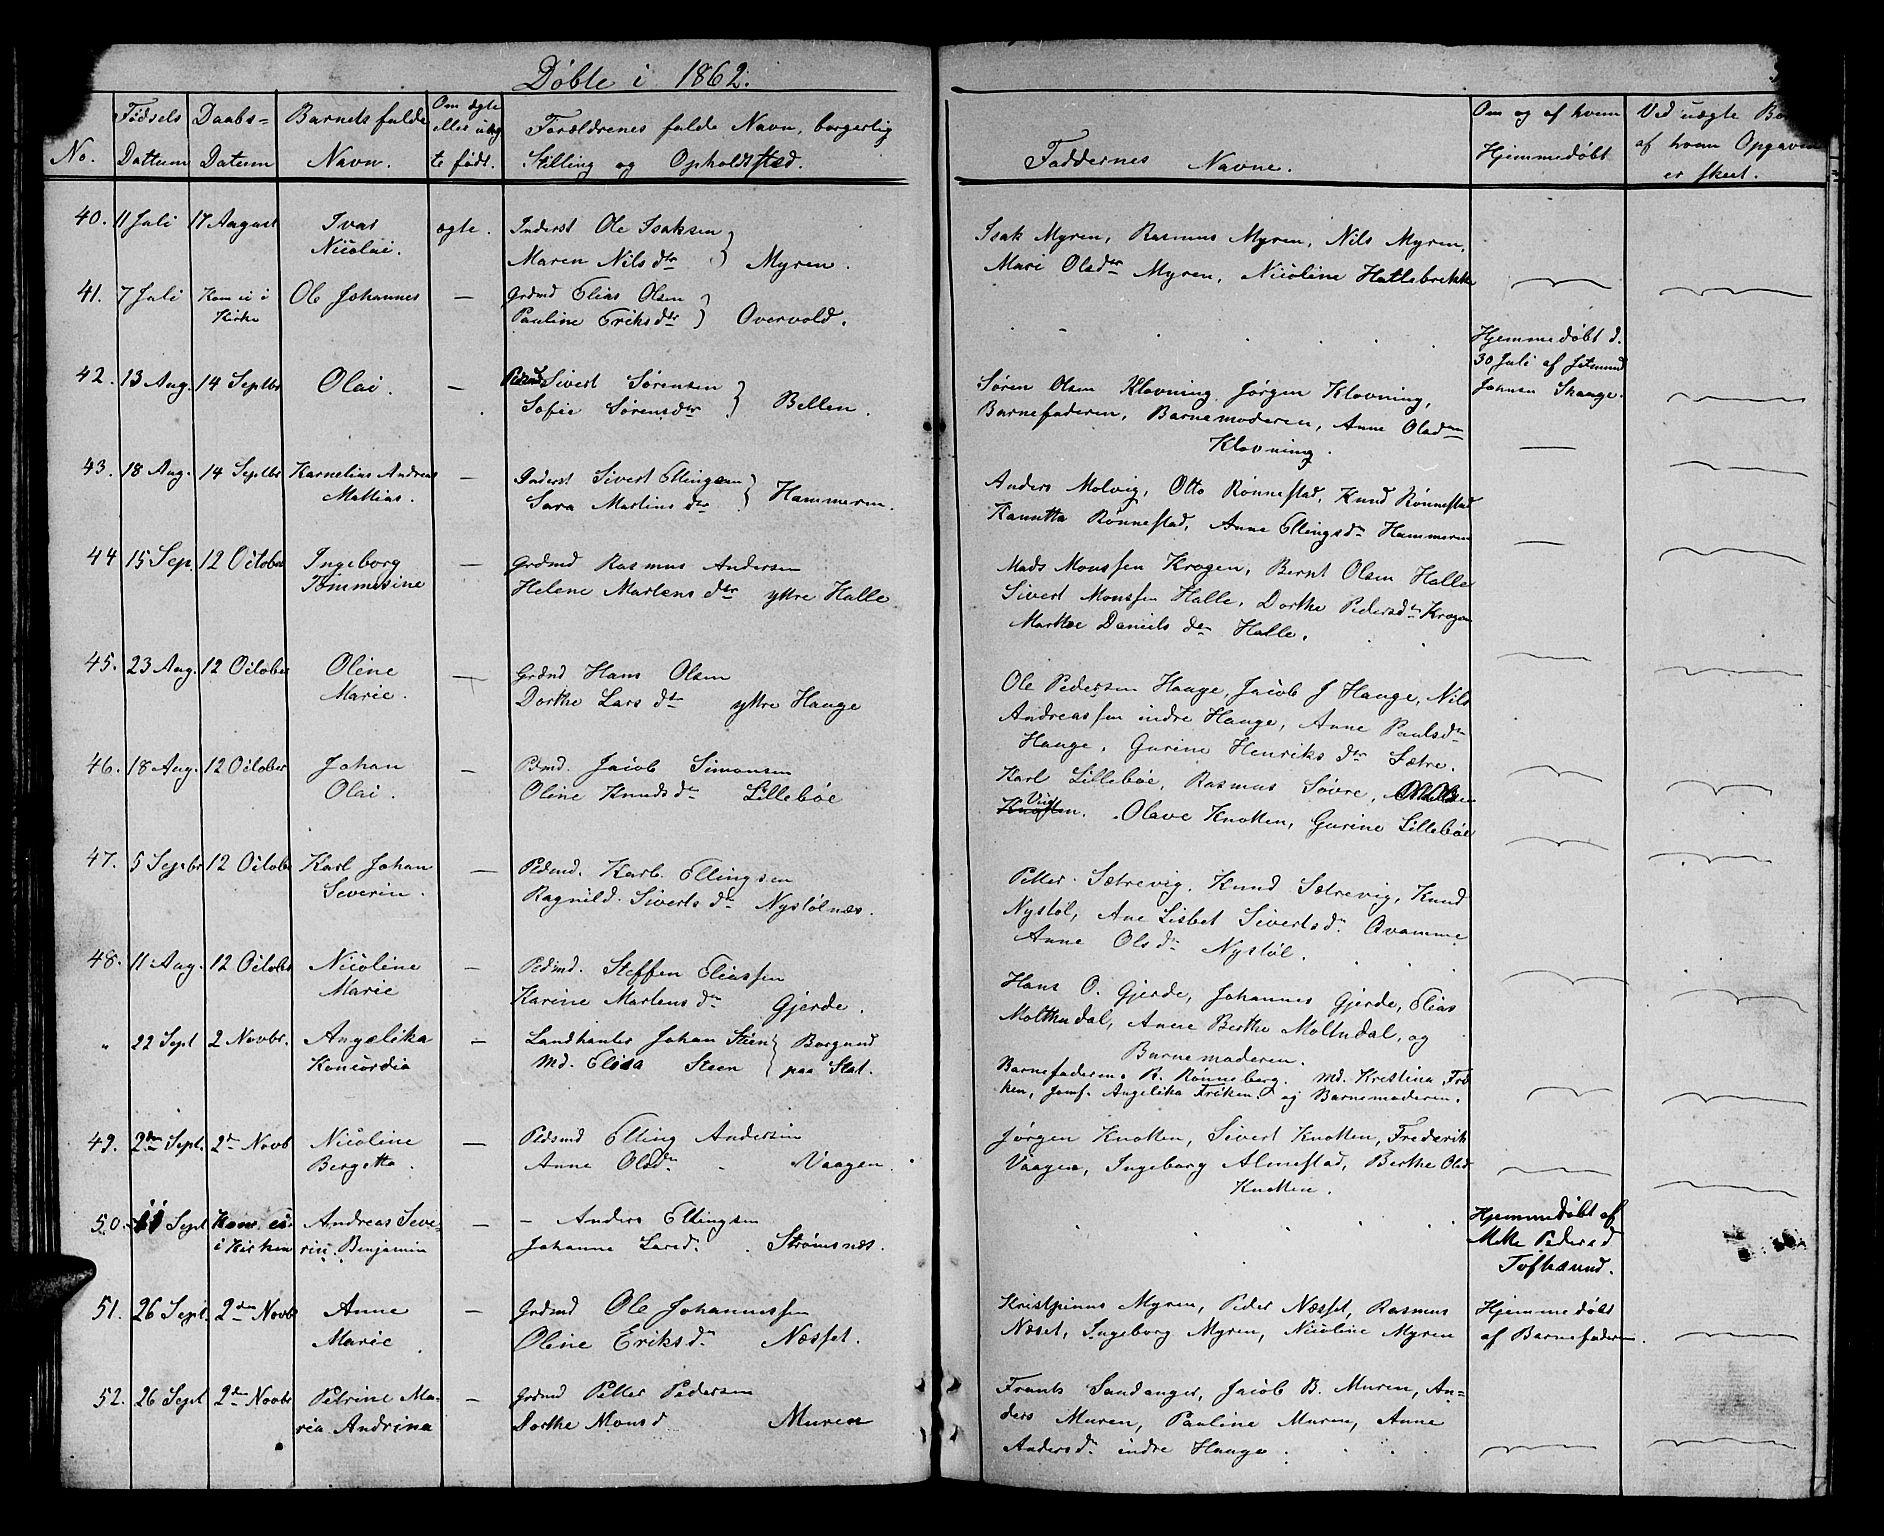 Døbte i 1862.
No.
Fødsels Dattum
Daabs= Datum
Barnets fulde Navn.
Om ægte eller uæg te født.
Forældrenes fulde Navn, borgerlig Stilling og Opholdssted.
Faddernes Navne.
Om og af hvem Hjemmedøbt
Ved uægte
af hvem Opgaven
er skeet.
40. 11 Juli 17 August Ivar ægte. Inderst Ole Isaksen
Nicolai. Maren Nils dtr Myren.
Isak Myren, Rasmus Myren, Nils Myren,
Mari Olsdtr Myren, Nicoline Hallebrekke
41. 7 Juli Kom ei i Ole Johannes — Grdmd Elias Olsen
Kirke Pauline Eriksdtr Overvold.
Hjemmedøbt d.
30 Juli af
Johnsen Skaage.
42. 13 Aug. 14 Septbr Olai. — Sivert Sørensen
Sofie Sørensdtr Bellen.
Søren Olsen Klovning, Jørgen Klovning,
Barnefaderen, Barnemoderen, Anne Olsd
Klovning.
43. 18 Aug. 14 Septbr Karnelius Andreas — Inderst Sivert Ellingsen
Mattias. Sara Martins dtr Hammeren.
Anders Molvig, Otto Rønnestad, Knud Rønnestad
Kanutta Rønnestad, Anne Ellingsdr Hammeren
44 15 Sep. 12 October Ingeborg — Grdmd Rasmus Andersen
Tommesine Helene Martens dtr yttre Halle
Mads Monssen Krogen, Bernt Olsen Halle
Sivert Monssen Halle, Dorthe Pedersdr Krogen
Marthe Daniels dr Halle.
45. 23 Aug. 12 October Oline — Grdmd Hans Olsen
Marie. Dorthe Lars dtr yttre Hauge
Ole Pedersen Hauge, Jacob J Hauge, Nils
Andreassen indre Hauge, Anne Paulsdr
Hauge, Gurine Henriks dtr Sætre.
46. 18 Aug. 12 October Johan — Pdmd. Jacob Simonsen
Olai. Oline Knuds dr Lillebøe
Karl Lillebøe, Rasmus Søvre,
Knotten. Vig Olave Knotten, Gurine Lillebøe
47. 5 Sepbr 12 October Karl Johan — Pdmd. Karl. Ellingsen
Severin. Ragnild. Siverts dr Nystølnæs.
Petter Sætrevig, Knud Sætrevig, Knud
Nystøl, Ane Lisbet Sivertsd. Qvamme
Anne Olsdr Nystøl.
48. 11 Aug. 12 October Nicoline — Pdmd. Steffen Eliassen
Marie Karine Martens dr Gjerde.
Hans O. Gjerde, Johannes Gjerde, Elias
Molthudal, Anne Berthe Moltudal, og
Barnemoderen.
" 22 Sept 2 Novbr. Angelika — Landhanler Johan Steen Borgund
Koncordia Md. Elisa Steen paa Stat.
Barnefaderen. B. Rønneberg. Md. Kristina Fri
ken, Jomf. Angelika Friken. og Barnemoderen.
49. 2den Sept. 2de Novb Nicoline — Pdsmd Elling Andersen
Bergetta. Anne Olsdr Vaagen.
Jørgen Knotten, Sivert Knotten, Frederik
Vaagen, Ingeborg Almestad, Berthe Olsd
Knotten.
50. 11 Sept Kom ei Andreas Seve= — – Anders Ellingsen
i Kirken rin Benjamin Johanne Larsd. Strømsnæs.
Hjemmedøbt af
Mette Pedersd
Toftesund.
51. 26 Sept. 2den Novb Anne — Grdmd Ole Johannessen
Marie Oline Eriks dr Næsset.
Kristpinus Myren, Peder Næsset, Rasmus
Næset, Ingeborg Myren, Nicoline Myren
Hjemmedøbt
af Barnefaderen.
52. 26 Sept 2de Novbr Petrine Ma= — Grdmd Petter Pedersen
ria Andrina Dorthe Monsd Muren
Frants Sandanger, Jacob B. Muren, An=
ders Muren, Pauline Muren, Anne
Andersdr indre Hauge.